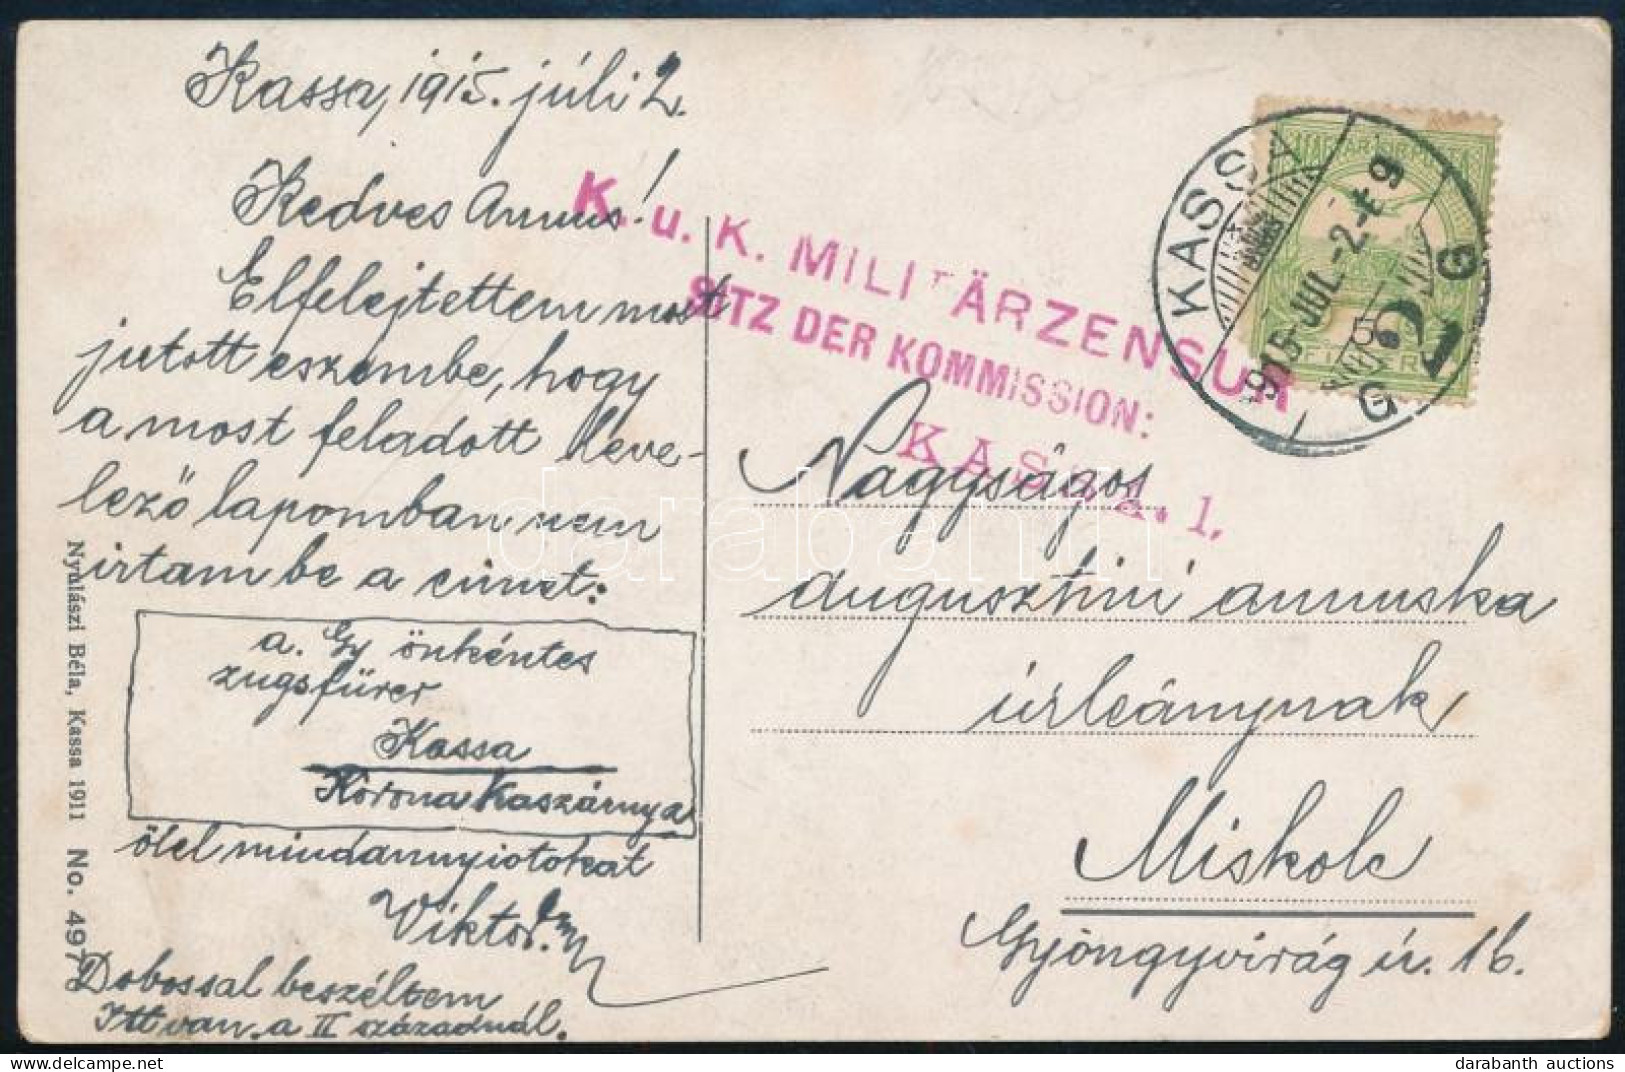 Kassa, 1915. júli 2.
Kedves Annus!
Elfelejtettem most
jutott eszembe, hogy
a most feladott leve-
lező lapomban nem
irtam be a cimet:
a. Gy önkéntes
zugsfürer
Kassa
Korona Kaszárnya
ölel mindannyiotokat
Viktor
Dobossal beszéltem
Itt van a II századnál.
Nyulászi Béla, Kassa 1911 No. 497
K. u. K. MILITÄRZENSUR
SITZ DER KOMMISSION:
KASSA. 1.
KASSA
915 JUL -2
FILLER
Nagyságos
Augusztini Annuska
úrleánynak
Miskolc
Gyöngyvirág u. 16.
darabanth
darabanth auctions